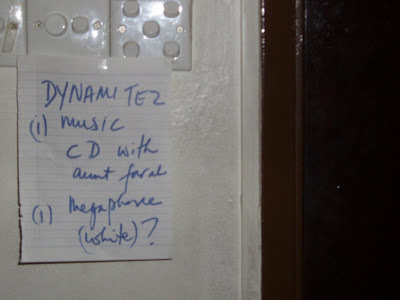 DYNAMITEZ
(1) music
CD with
aunt farah
(1) Megaphone
(white)?